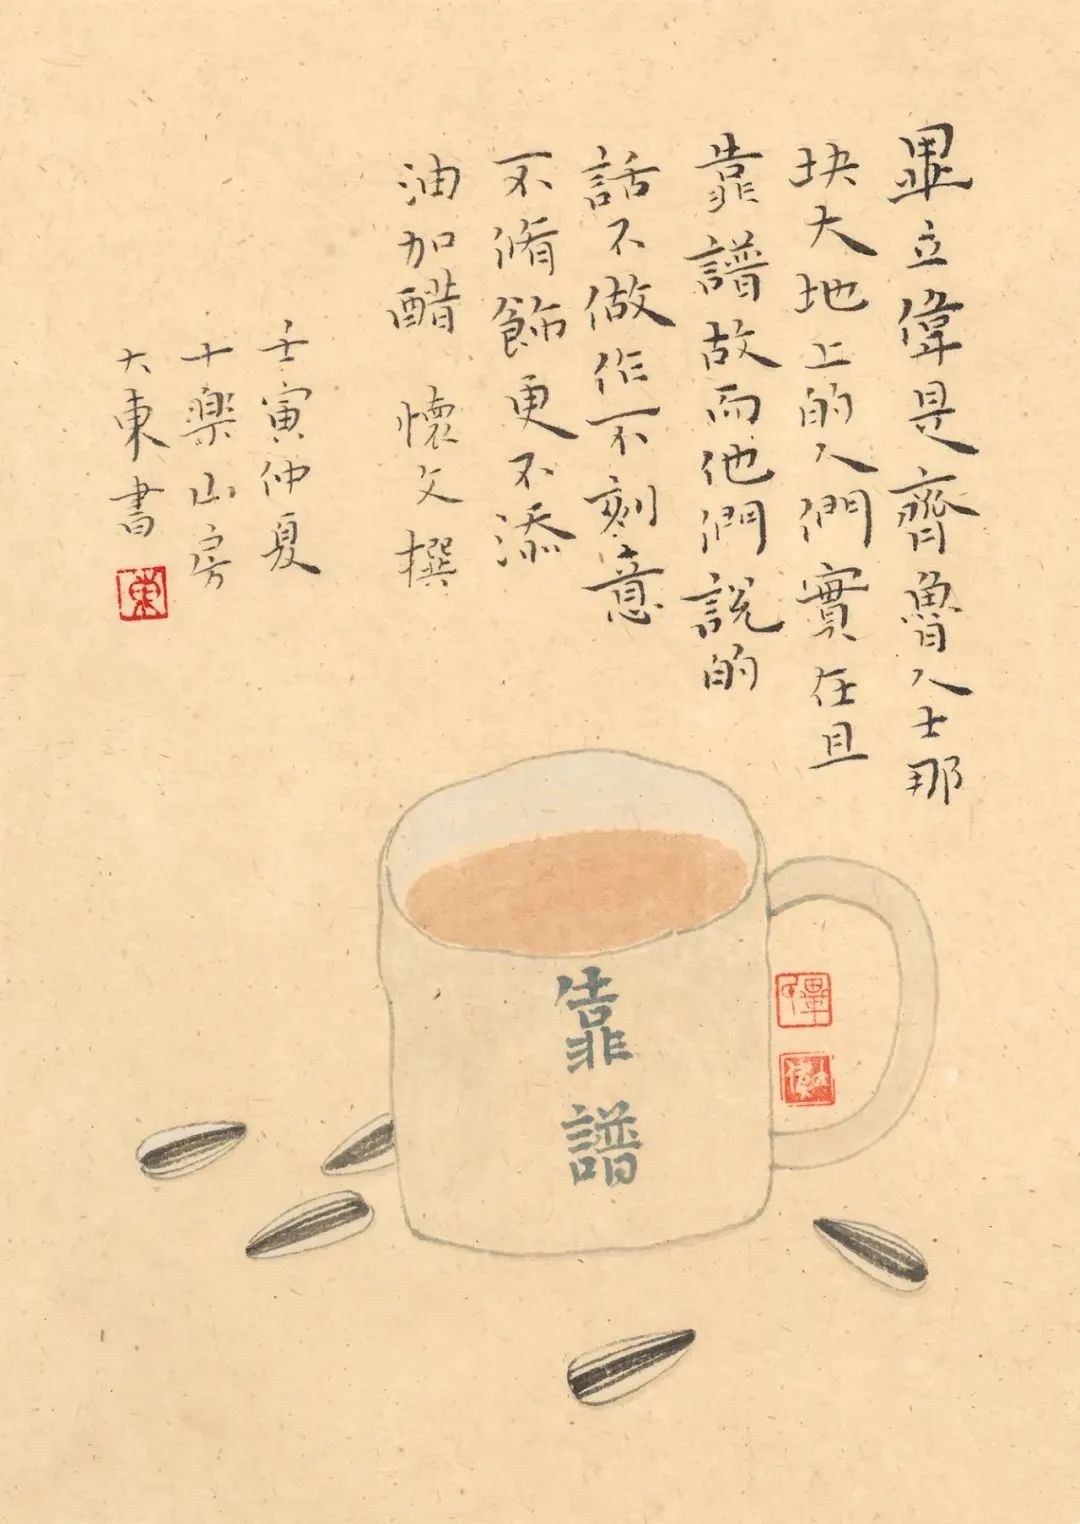 畢立偉是齊魯人士那
块大地上的人們實在且
靠譜故而他們說的
話不做作不刻意
不脩飾更不添
油加醋 懷文撰
壬寅仲夏
十樂山房
大東書
東
靠譜